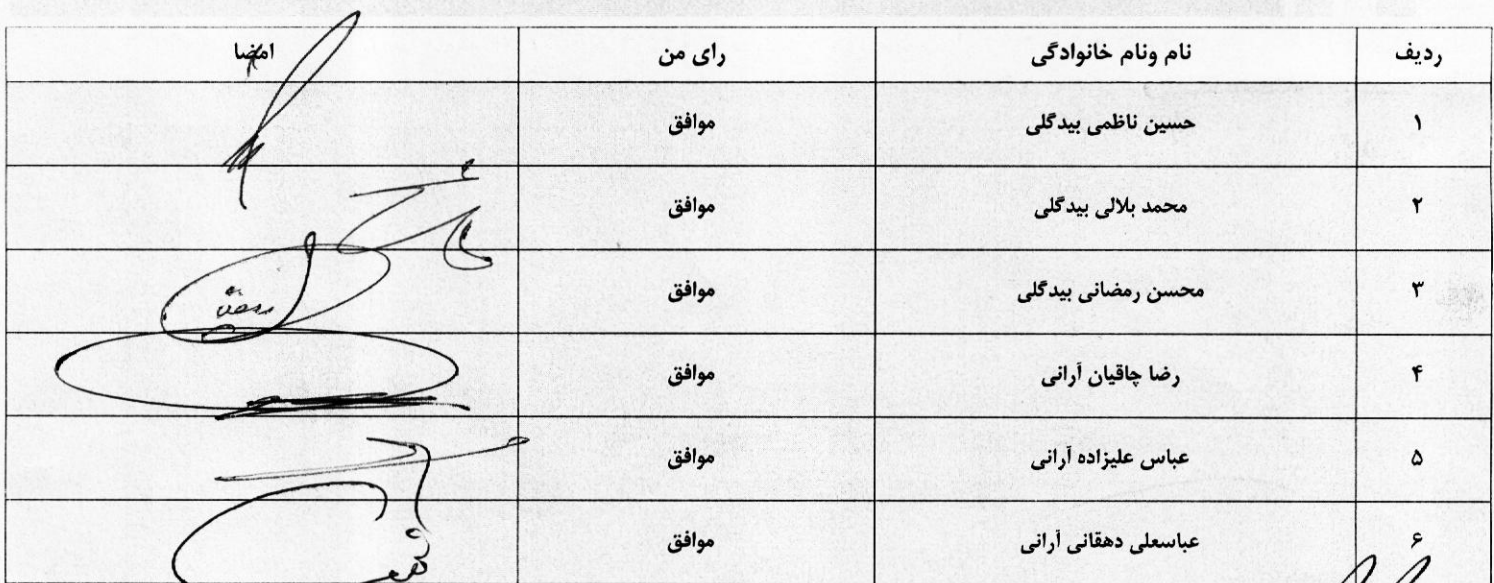 ردیف نام ونام خانوادگی رای من امضا
۱ حسین ناظمی بیدگلی موافق
۲ محمد بلالی بیدگلی موافق
۳ محسن رمضانی بیدگلی موافق
۴ رضا چاقیان آرانی موافق
۵ عباس علیزاده آرانی موافق
۶ عباسعلی دهقانی آرانی موافق